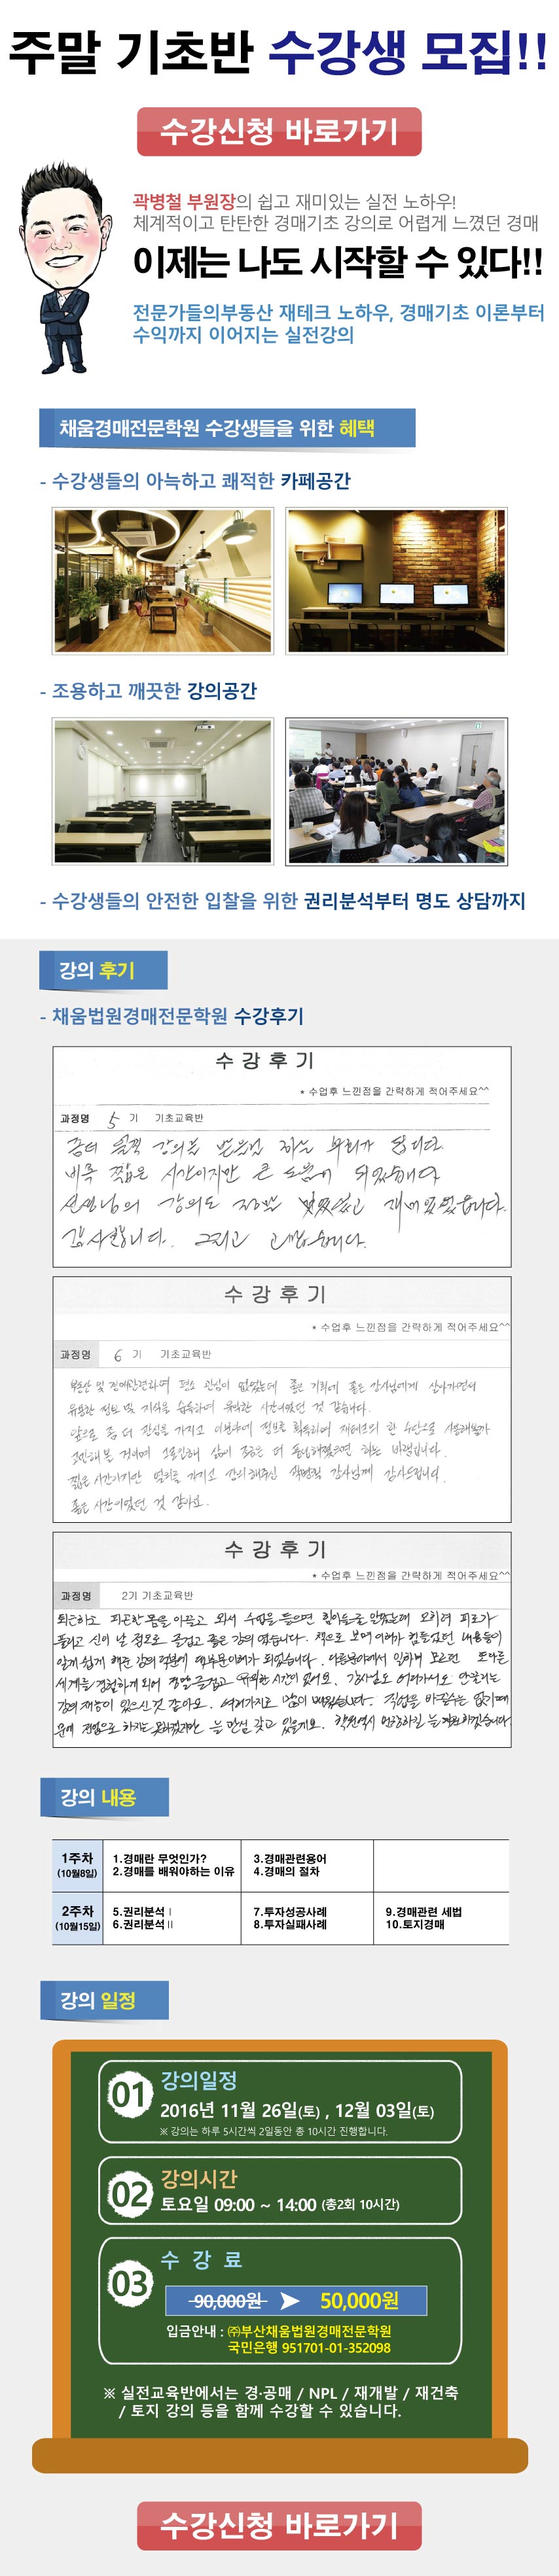 주말 기초반 수강생 모집!!
수강신청 바로가기
곽병철 부원장의 쉽고 재미있는 실전 노하우!
체계적이고 탄탄한 경매기초 강의로 어렵게 느꼈던 경매
이제는 나도 시작할 수 있다!!
전문가들의부동산 재테크 노하우, 경매기초 이론부터
수익까지 이어지는 실전강의
채움경매전문학원 수강생들을 위한 혜택
- 수강생들의 아늑하고 쾌적한 카페공간
- 조용하고 깨끗한 강의공간
- 수강생들의 안전한 입찰을 위한 권리분석부터 명도 상담까지
강의 후기
- 채움법원경매전문학원 수강후기
수 강 후 기
* 수업후 느낀점을 간략하게 적어주세요^^
과정명 5 기 기초교육반
좀더 일찍 강의를
비록 짧은 시간이지만 큰 도움이 되었습니다
선생님의 강의도 정말 멋있었고 재미있었습니다.
감사합니다. 그리고 고맙습니다.
수 강 후 기
* 수업후 느낀점을 간략하게 적어주세요^^
과정명 6 기 기초교육반
부동산 및 경매관련하여 평소 관심이 없었는데 좋은 기회에 좋은 강사님에게
유용한 정보 및 지식을 습득하여 유익한 시간이었던 것 같습니다.
앞으로 좀 더 관심을 가지고 이분야에 정보를 획득하여 재테크의 한 수단으로
삶이 조금은 더 하는 바램입니다.
짧은 시간이지만 열의를 가지고 강의해주신 곽병철 강사님께 감사드립니다.
좋은 시간이었던 것 같아요.
수 강 후 기
* 수업후 느낀점을 간략하게 적어주세요^^
과정명 2기 기초교육반
퇴근하고 피곤한 몸을 이끌고 와서 수업을 들으면 힘이들줄 알았는데 오히려 피로가
풀리고 신이 날 정도로 즐겁고 좋은 강의 였습니다. 책으로 보며 이해가 힘들었던 내용들이
알기 쉽게 해준 강의 덕분에 대부분이해가 되었습니다. 다른분야에서 일하며 모르던 또다른
세계를 경험하게 되어 정말 즐겁고 유익한 시간이 었어요. 강사님도 어려가서도 안꿀리는
강연 재능이 있으신것 같아요. 여러가지로 많이 배웠습니다. 직업을 바꿀수는 없기때
문에 전업으로 하지는 못하겠지만 늘 관심 갖고 있을게요. 학원역시 번창하길 늘 기도하겠습니다.
강의 내용
1주차 1.경매란 무엇인가? 3.경매관련용어
(10월8일) 2.경매를 배워야하는 이유 4.경매의 절차
2주차 5.권리분석 Ⅰ 7.투자성공사례 9.경매관련 세법
(10월15일) 6.권리분석 Ⅱ 8.투자실패사례 10.토지경매
강의 일정
01 강의일정
2016년 11월 26일(토) , 12월 03일(토)
※ 강의는 하루 5시간씩 2일동안 총 10시간 진행합니다.
02 강의시간
토요일 09:00 ~ 14:00 (총2회 10시간)
03 수 강 료
90,000원 50,000원
입금안내 : ㈜부산채움법원경매전문학원
국민은행 951701-01-352098
※ 실전교육반에서는 경·공매 / NPL / 재개발 / 재건축
/ 토지 강의 등을 함께 수강할 수 있습니다.
수강신청 바로가기